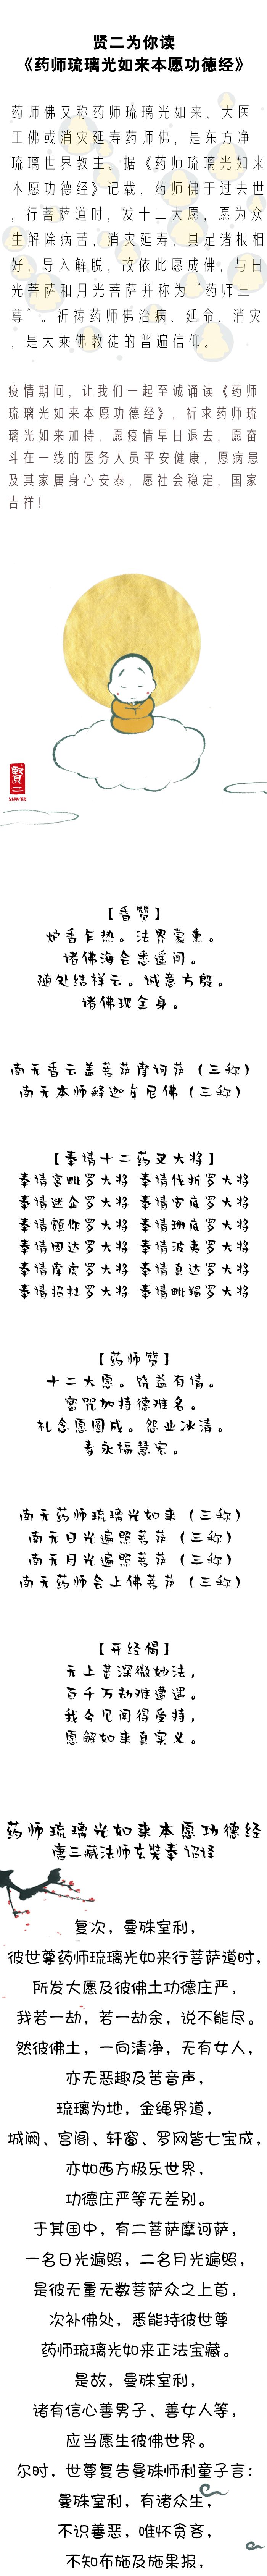 贤二为你读
《药师琉璃光如来本愿功德经》
药师佛又称药师琉璃光如来、大医
王佛或消灾延寿药师佛，是东方净
琉璃世界教主。据《药师琉璃光如来
本愿功德经》记载，药师佛于过去世
，行菩萨道时，发十二大愿，愿为众
生解除病苦，消灾延寿，具足诸根相
好，导入解脱，故依此愿成佛，与日
光菩萨和月光菩萨并称为“药师三
尊”。祈祷药师佛治病、延命、消灾
，是大乘佛教徒的普遍信仰。
疫情期间，让我们一起至诚诵读《药师
琉璃光如来本愿功德经》，祈求药师琉
璃光如来加持，愿疫情早日退去，愿奋
斗在一线的医务人员平安健康，愿病患
及其家属身心安泰，愿社会稳定，国家
吉祥！
贤二
【香赞】
炉香乍热。法界蒙熏。
诸佛海会悉遥闻。
随处结祥云。诚意方殷。
诸佛现全身。
南无香云盖菩萨摩诃萨（三称）
南无本师释迦牟尼佛（三称）
【奉请十二药叉大将】
奉请宫毗罗大将 奉请伐折罗大将
奉请迷企罗大将 奉请安底罗大将
奉请頞你罗大将 奉请珊底罗大将
奉请因达罗大将 奉请波夷罗大将
奉请摩虎罗大将 奉请真达罗大将
奉请招杜罗大将 奉请毗羯罗大将
【药师赞】
十二大愿。饶益有情。
密咒加持德难名。
礼念愿圆成。怨业冰清。
寿永福慧宏。
南无药师琉璃光如来（三称）
南无日光遍照菩萨（三称）
南无月光遍照菩萨（三称）
南无药师会上佛菩萨（三称）
【开经偈】
无上甚深微妙法，
百千万劫难遭遇。
我今见闻得受持，
愿解如来真实义。
药师琉璃光如来本愿功德经
唐三藏法师玄奘奉 诏译
复次，曼殊室利，
彼世尊药师琉璃光如来行菩萨道时，
所发大愿及彼佛土功德庄严，
我若一劫，若一劫余，说不能尽。
然彼佛土，一向清净，无有女人，
亦无恶趣及苦音声，
琉璃为地，金绳界道，
城阙、宫阁、轩窗、罗网皆七宝成，
亦如西方极乐世界，
功德庄严等无差别。
于其国中，有二菩萨摩诃萨，
一名日光遍照，二名月光遍照，
是彼无量无数菩萨众之上首，
次补佛处，悉能持彼世尊
药师琉璃光如来正法宝藏。
是故，曼殊室利，
诸有信心善男子、善女人等，
应当愿生彼佛世界。
尔时，世尊复告曼殊师利童子言：
曼殊室利，有诸众生，
不识善恶，唯怀贪吝，
不知布施及施果报，